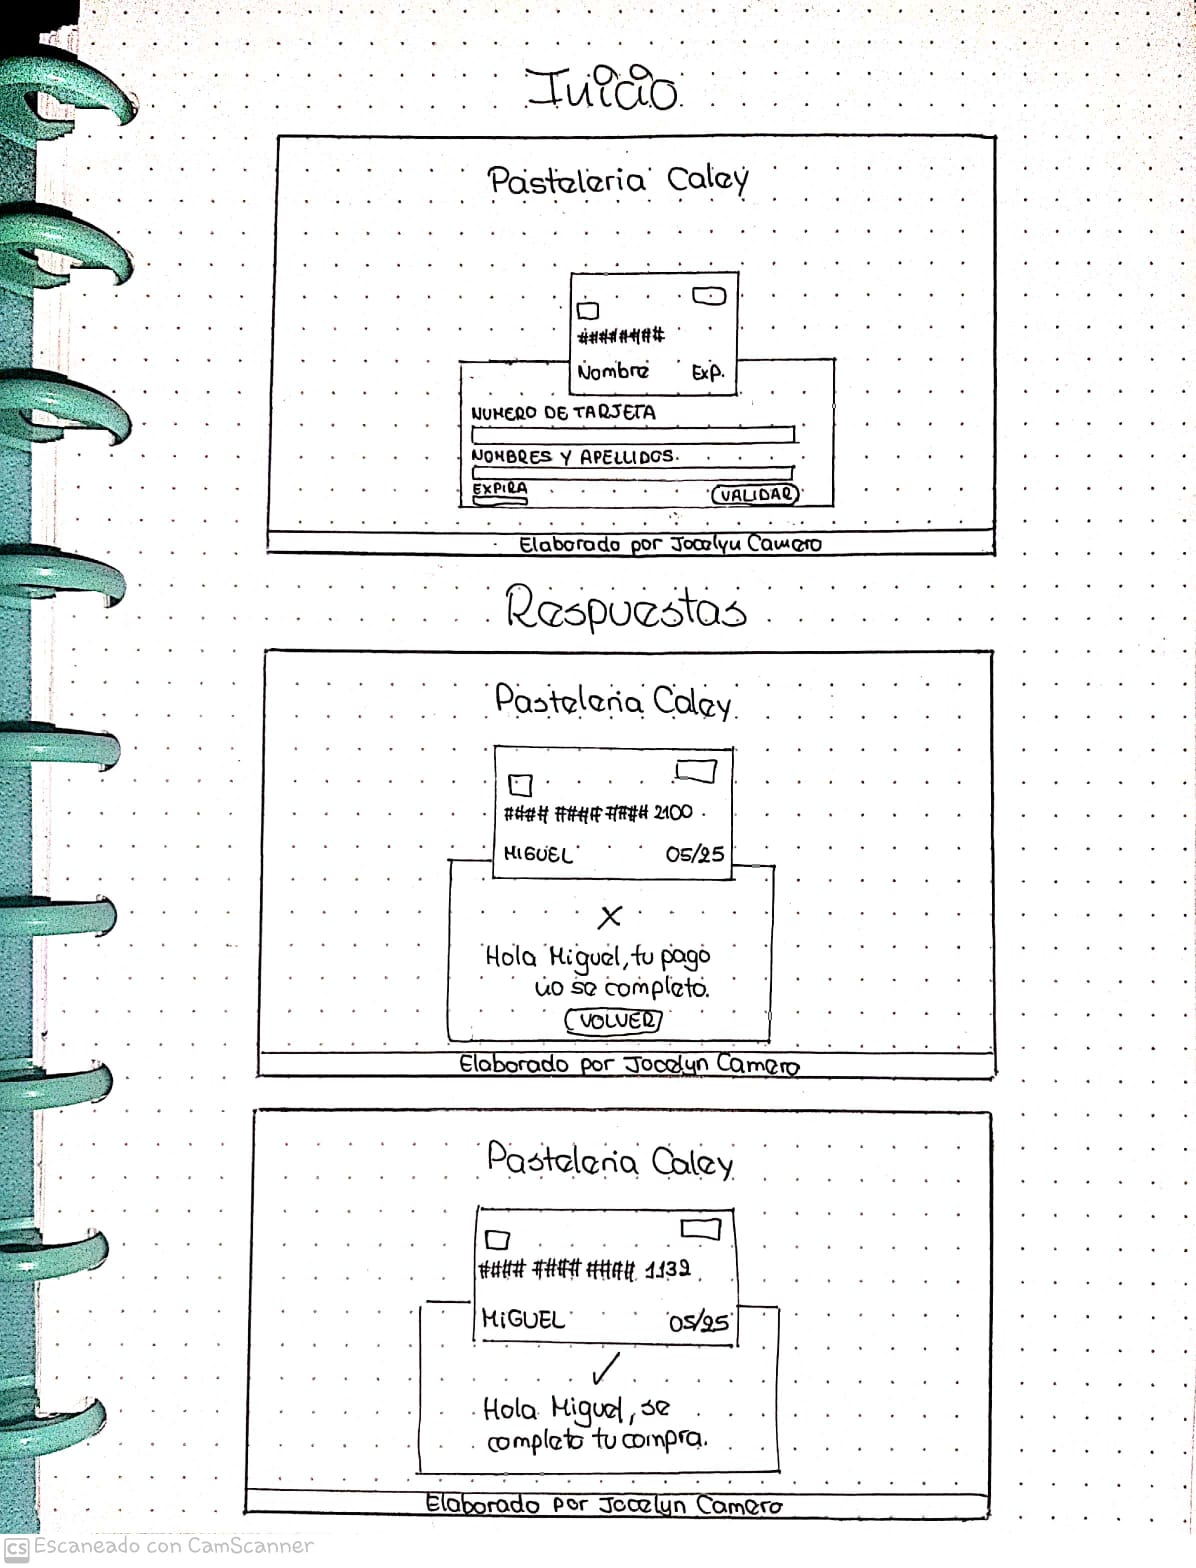 Inicio.
Pasteleria Caley
########
Nombre Exp.
NUMERO DE TARJETA
NOMBRES Y APELLIDOS.
EXPIRA
VALIDAR
Elaborado por Jocelyn Camero
Respuestas
Pasteleria Caley
#### #### #### 2100
MIGUEL 05/25
X
Hola Miguel, tu pago
no se completo.
VOLVER
Elaborado por Jocelyn Camero
Pasteleria Caley
#### #### #### 1132
MiGUEL 05/25
✓
Hola Miguel, se
completo tu compra.
Elaborado por Jocelyn Camero
CS Escaneado con CamScanner